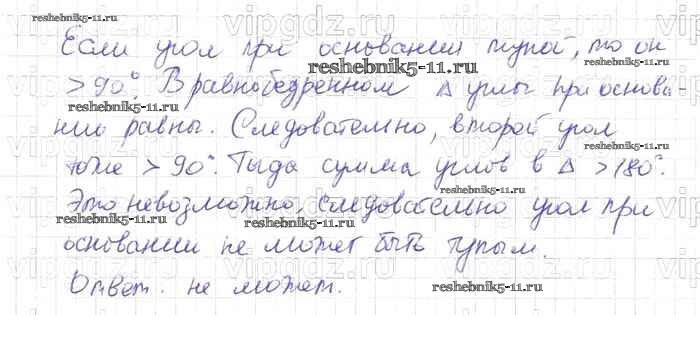 Если угол при основании тупой, то он
> 90°. В равнобедренном Δ углы при основа-
нии равны. Следовательно, второй угол
тоже > 90°. Тогда сумма углов в Δ > 180°.
Это невозможно, следовательно угол при
основании не может быть тупым.
Ответ. не может.
reshebnik5-11.ru
reshebnik5-11.ru
reshebnik5-11.ru
reshebnik5-11.ru
reshebnik5-11.ru
reshebnik5-11.ru
reshebnik5-11.ru
reshebnik5-11.ru
vipgdz.ru